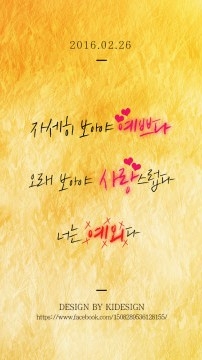 2016.02.26
자세히 보아야 예쁘다
오래 보아야 사랑스럽다
너는 예외다
DESIGN BY KIDESIGN
https://www.facebook.com/1508289536128155/